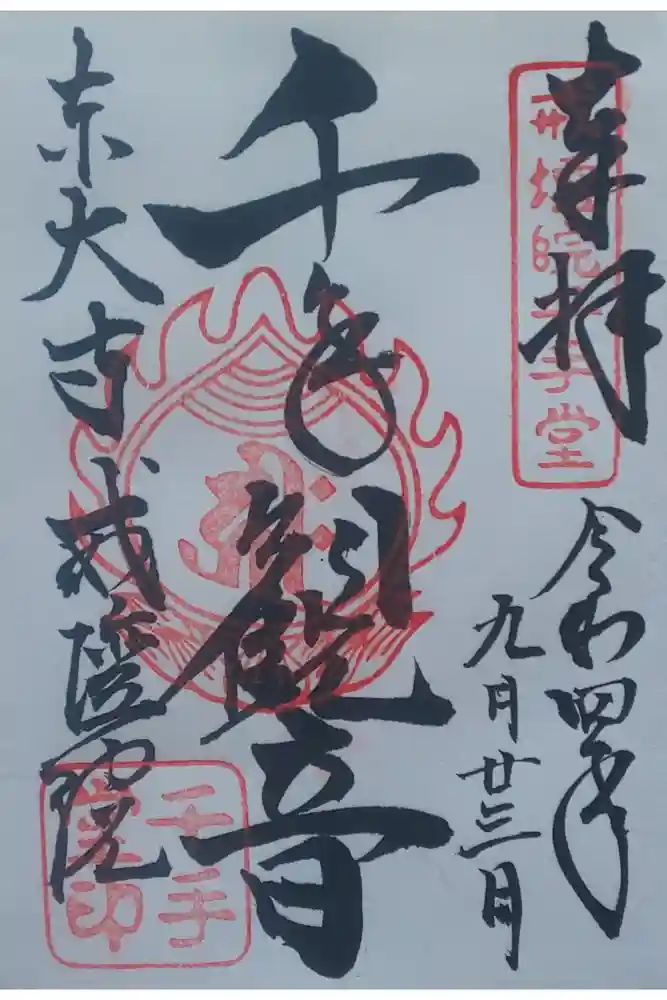 奉拝
戒壇院千手堂
令和四年
九月廿三日
千手観音
東大寺戒壇院
千手
堂印